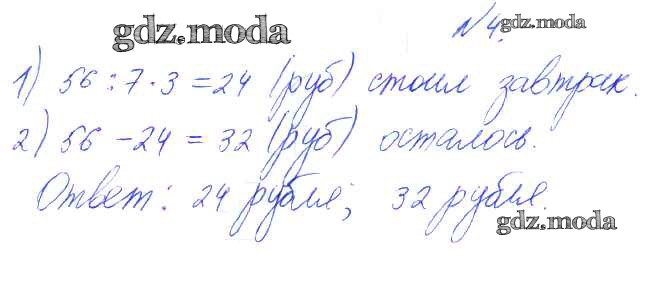 gdz.moda
№4. gdz.moda
1) 56 : 7 · 3 = 24 (руб) стоил завтрак.
2) 56 - 24 = 32 (руб) осталось.
Ответ: 24 рубля; 32 рубля.
gdz.moda